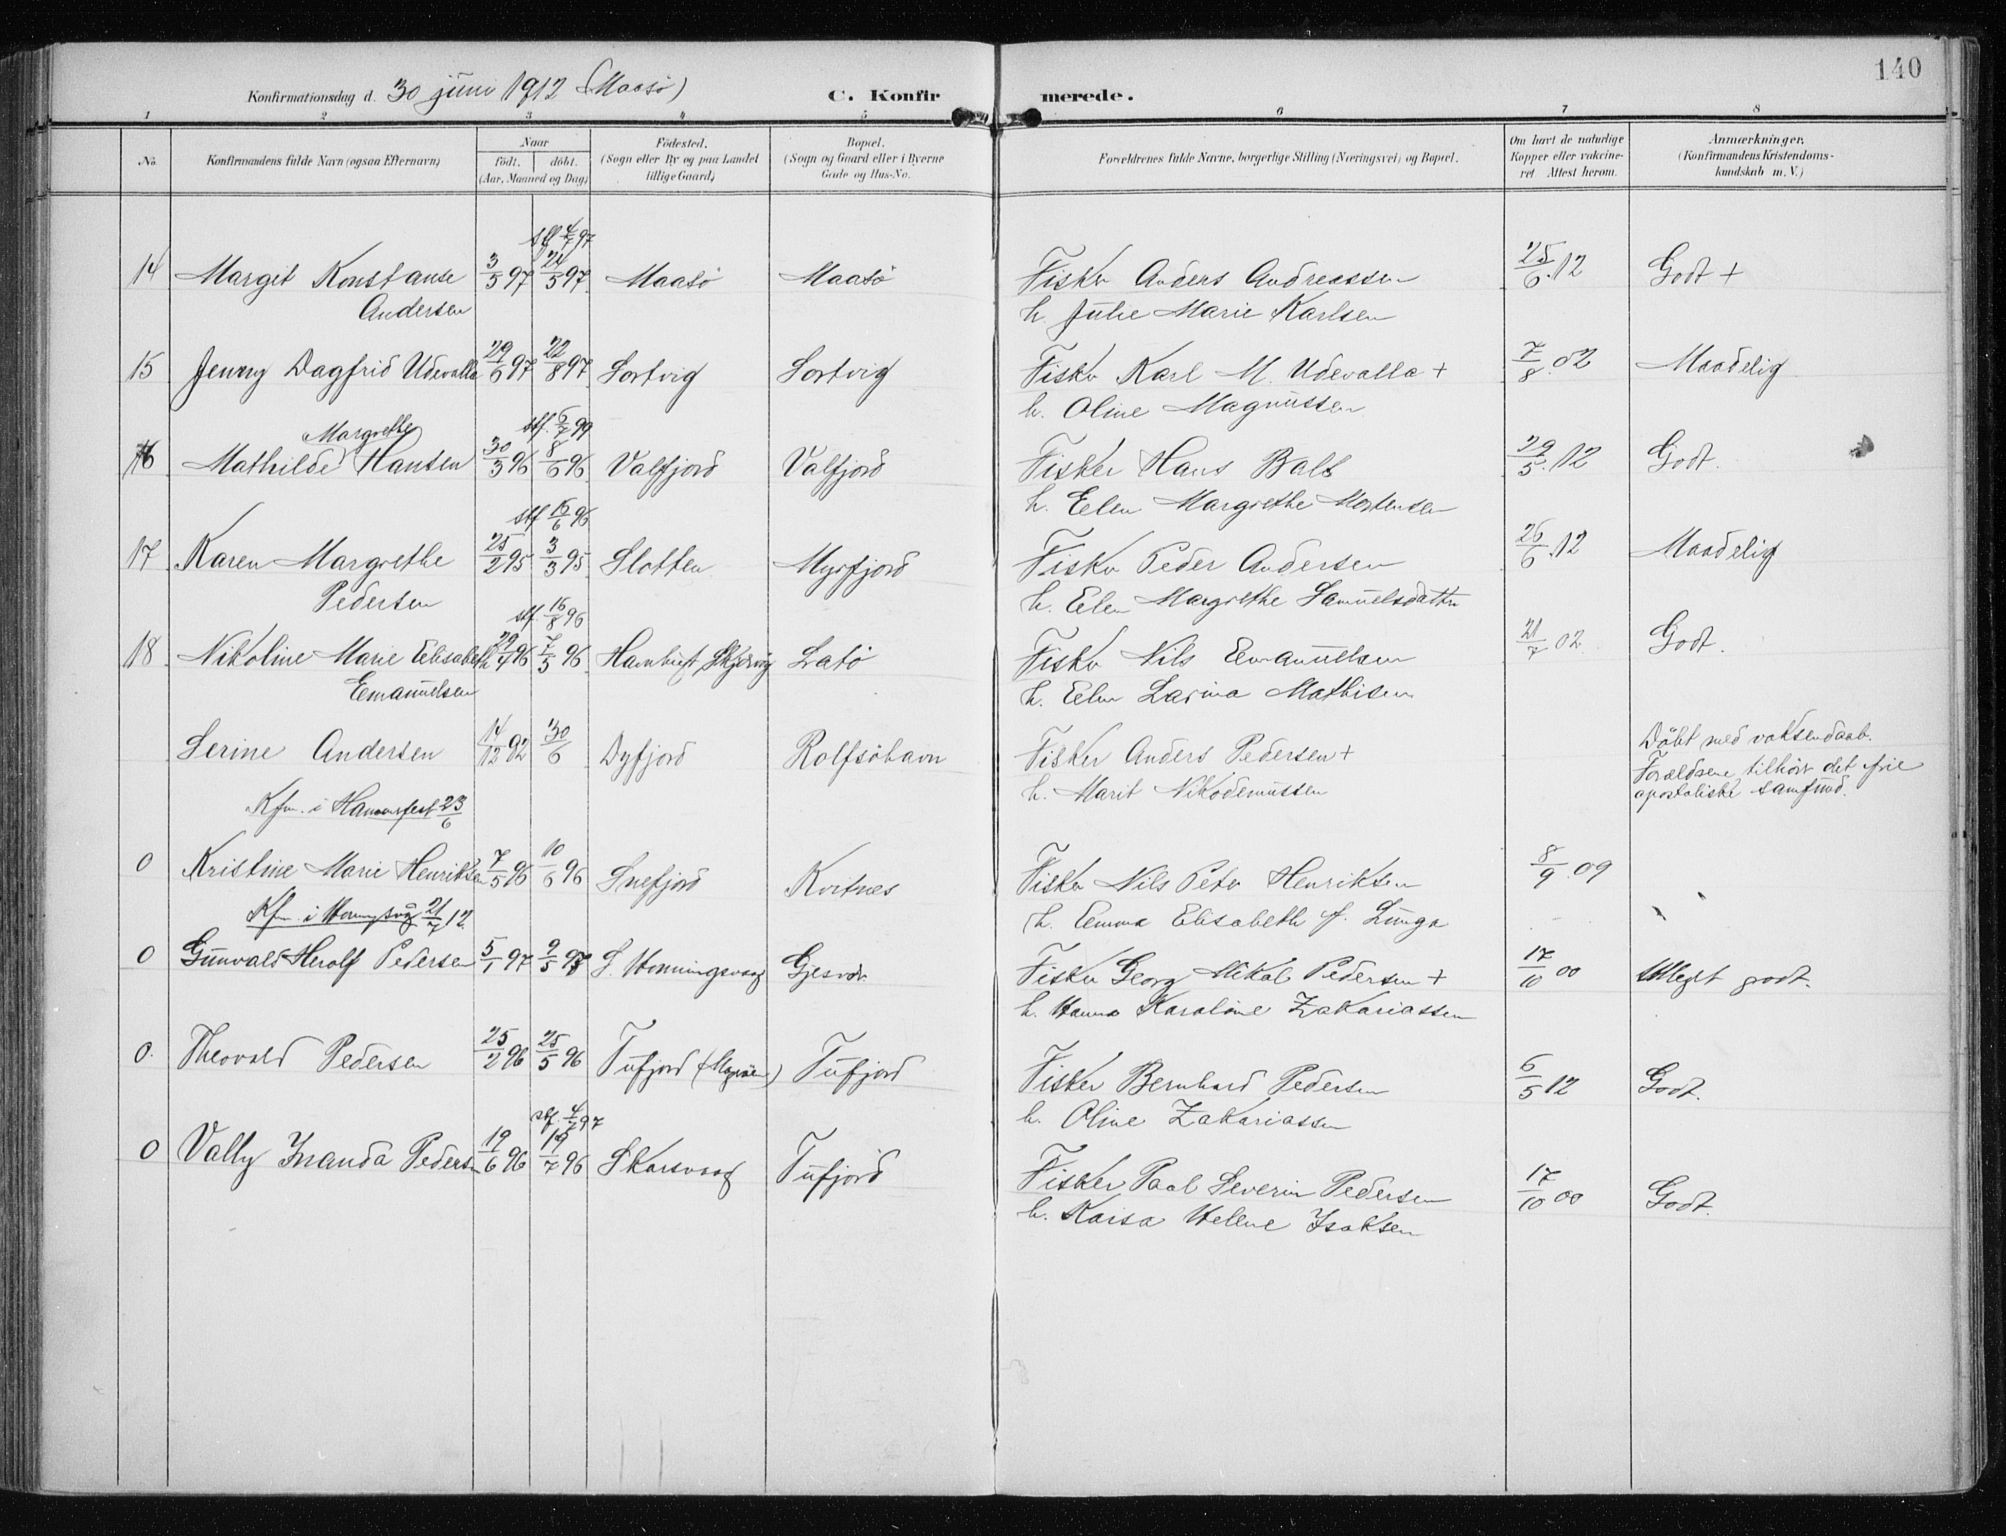 140
Konfirmationsdag d. 30 juni 1912 (Maasö)
C. Konfirmerede.
1 2 3 4 5 6 7 8
No.
Konfirmandens fulde Navn (ogsaa Efternavn)
Naar
födt. döbt.
(Aar, Maaned og Dag)
Födested.
(Sogn eller By og paa Landet
tillige Gaard)
Bopæl.
(Sogn og Gaard eller i Byerne
Gade og Hus-No.
Forældrenes fulde Navne, borgerlige Stilling (Næringsvei) og Bopæl.
Om havt de naturlige
Kopper eller vakcine-
ret Attest herom.
Anmærkninger.
(Konfirmandens Kristendoms-
kundskab m. V.)
stf 4/7 97
14 Margit Konstanse 3/5 97 24/5 97 Maasö Maasö Fisker Anders Andreassen 25/6.12 Godt +
Andersen h. Julie Marie Karlsen
15 Jenny Dagfrid Udevalla 29/6 97 22/8 97 Sortvig Sortvig Fisker Karl M. Udevalla + 7/8.02 Maadelig
h. Oline Magnussen
Margrethe stf. 6/7 99
16 Mathilde Hansen 30/3 96 8/6 96 Valfjord Valfjord Fisker Hans Balt 29/5.12 Godt.
h. Elen Margrethe Mortensen
stf 16/6 96
17 Karen Margrethe 25/2 95 3/3 95 Slotten Myrfjord Fisker Peder Andersen 26/6.12 Maadelig
Pedersen h. Elen Margrethe Samuelsdatter
stf. 16/8 96
18 Nikoline Marie Elisabeth 29/4 96 7/5 96 Havnbugt Skjervög Latö Fisker Nils Emanuelsen 21/7 02. Godt.
Emanuelsen h. Elen Larina Mathisen
Serine Andersen 14/12 92 30/6 Dyfjord Rolfsöhavn Fisker Anders Pedersen + Döbt med voksendaab.
Kfm. i Hammerfest 23/6 h. Marit Nikodemussen Forældrene tilhör det frie
apostoliske samfund.
0 Kristine Marie Henriksen 7/5 96 10/6 96 Snefjord Kvitnes Fisker Nils Peter Henriksen 8/9 09
Kfm. i Honningsvög 21/7 12. h. Emma Elisabeth f. Lunga
0 Gunvald Herolf Pedersen 5/1 97 9/5 97 S. Honningsvaag Gjesvær Fisker Georg Mikal Pedersen + 17/10 00 Meget godt.
h. Hanna Karoline Zakariassen
0. Theovald Pedersen 25/2 96 25/5 96 Tufjord Tufjord Fisker Bernhard Pedersen 6/5 12 Godt.
h. Oline Zakariassen
stf. 4/7 97
0 Vally Inanda Pedersen 19/6 96 19/7 96 Skarsvaag Tufjord Fisker Paal Severin Pedersen 17/10 00 Godt.
h. Kaisa Helene Isaksen